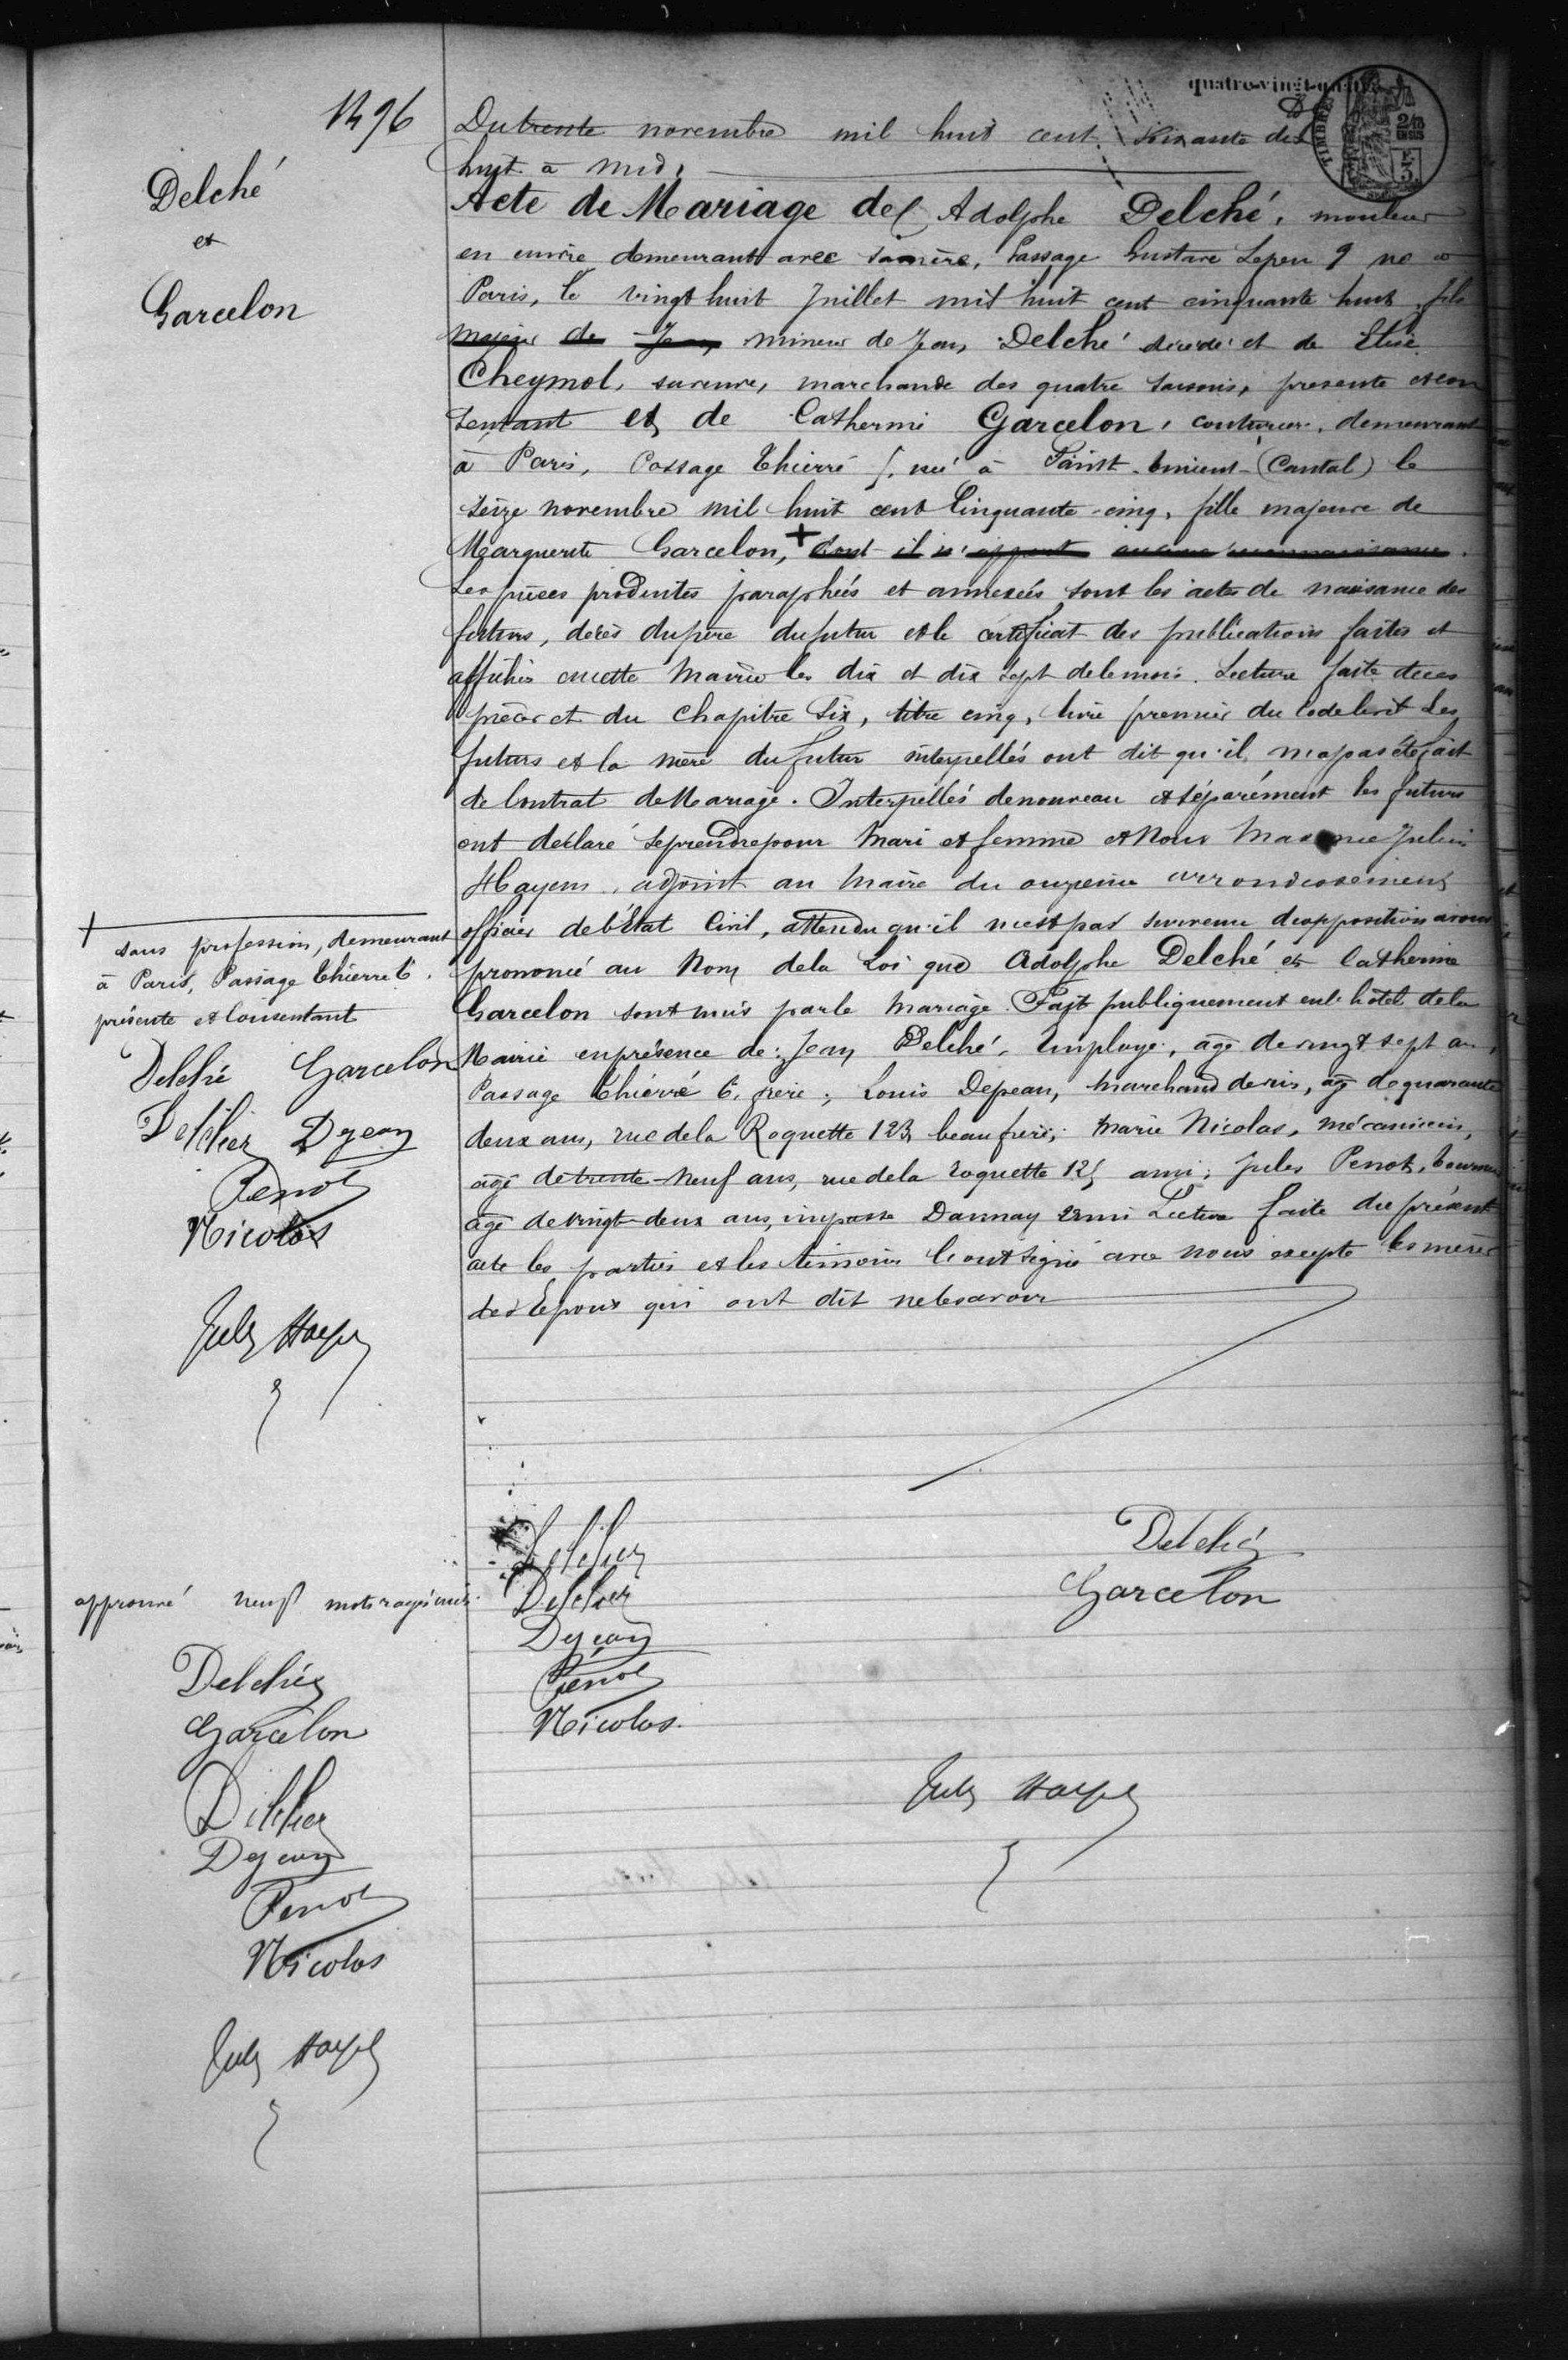 quatre-vingt-
1496
Delché
et
Garcelon
TIMBRE
Du trente novembre mil huit cent soixante dix
huit à midi
Acte de Mariage de Adolphe Delché, mouleur
en cuivre demeurant avec sa mère, Passage Gustave Lepeu 9 né à
Paris, le vingt huit Juillet mil huit cent cinquante huit, fils
majeur de Jean mineur de Jean Delché décédé et de Elise
Cheymol, sa veuve, marchande des quatre saisons, présente et con
sentant et de Catherine Garcelon, couturière, demeurant
à Paris, Passage Thierré 6, née à Saint (Cantal) le
seize novembre mil huit cent Cinquante-cinq, fille majeure de
Marguerite Garcelon, + dont il n'appert aucune reconnaissance.
Les pièces produites paraphées et annexées sont les actes de naissance des
futurs, décès du père du futur et le certificat des publications faites et
affichées en cette Mairie les dix et dix sept de ce mois. Lecture faite de ces
pièces et du Chapitre Six, titre cinq, livre premier du Code Civil Les
futurs et la mère du futur interpellés ont dit qu'il n'a pas été fait
de Contrat de Mariage. Interpellés de nouveau et séparément les futurs
ont déclaré se prendre pour Mari et femme et Nous Maxence Julien
Hayem, adjoint au Maire du onzième arrondissement
officier de l'Etat Civil, attendu qu'il n'est pas survenu d'opposition avons
prononcé au Nom de la Loi que Adolphe Delché et Catherine
Garcelon sont unis par le Mariage. Fait publiquement en l'hôtel de la
Mairie en présence de : Jean Delché, Employé, âgé de vingt sept ans,
Passage Thierré 6, frère ; Louis Dejean, Marchand de vin, âgé de quarante
deux ans, rue de la Roquette 123 beau frère ; Marie Nicolas, mécanicien,
âgé de trente-neuf ans, rue de la Roquette 125 ami ; Jules Penot, tourneur
âgé de vingt-deux ans, impasse Daunay ami Lecture faite du présent
acte les parties et les témoins l'ont signé avec nous excepté les mères
des Epoux qui ont dit ne le savoir
+ sans profession, demeurant
à Paris, Passage Thierré 6.
présente et Consentant
Delché Garcelon
Delcher Dejean
Penot
Nicolas
Jules Hayem
approuvé neuf mots rayés nuls
Delché
Garcelon
Delcher
Dejean
Penot
Nicolas
Jules Hayem
Delcher
Delcher
Dejean
Penot
Nicolas.
Delché
Garcelon
Jules Hayem